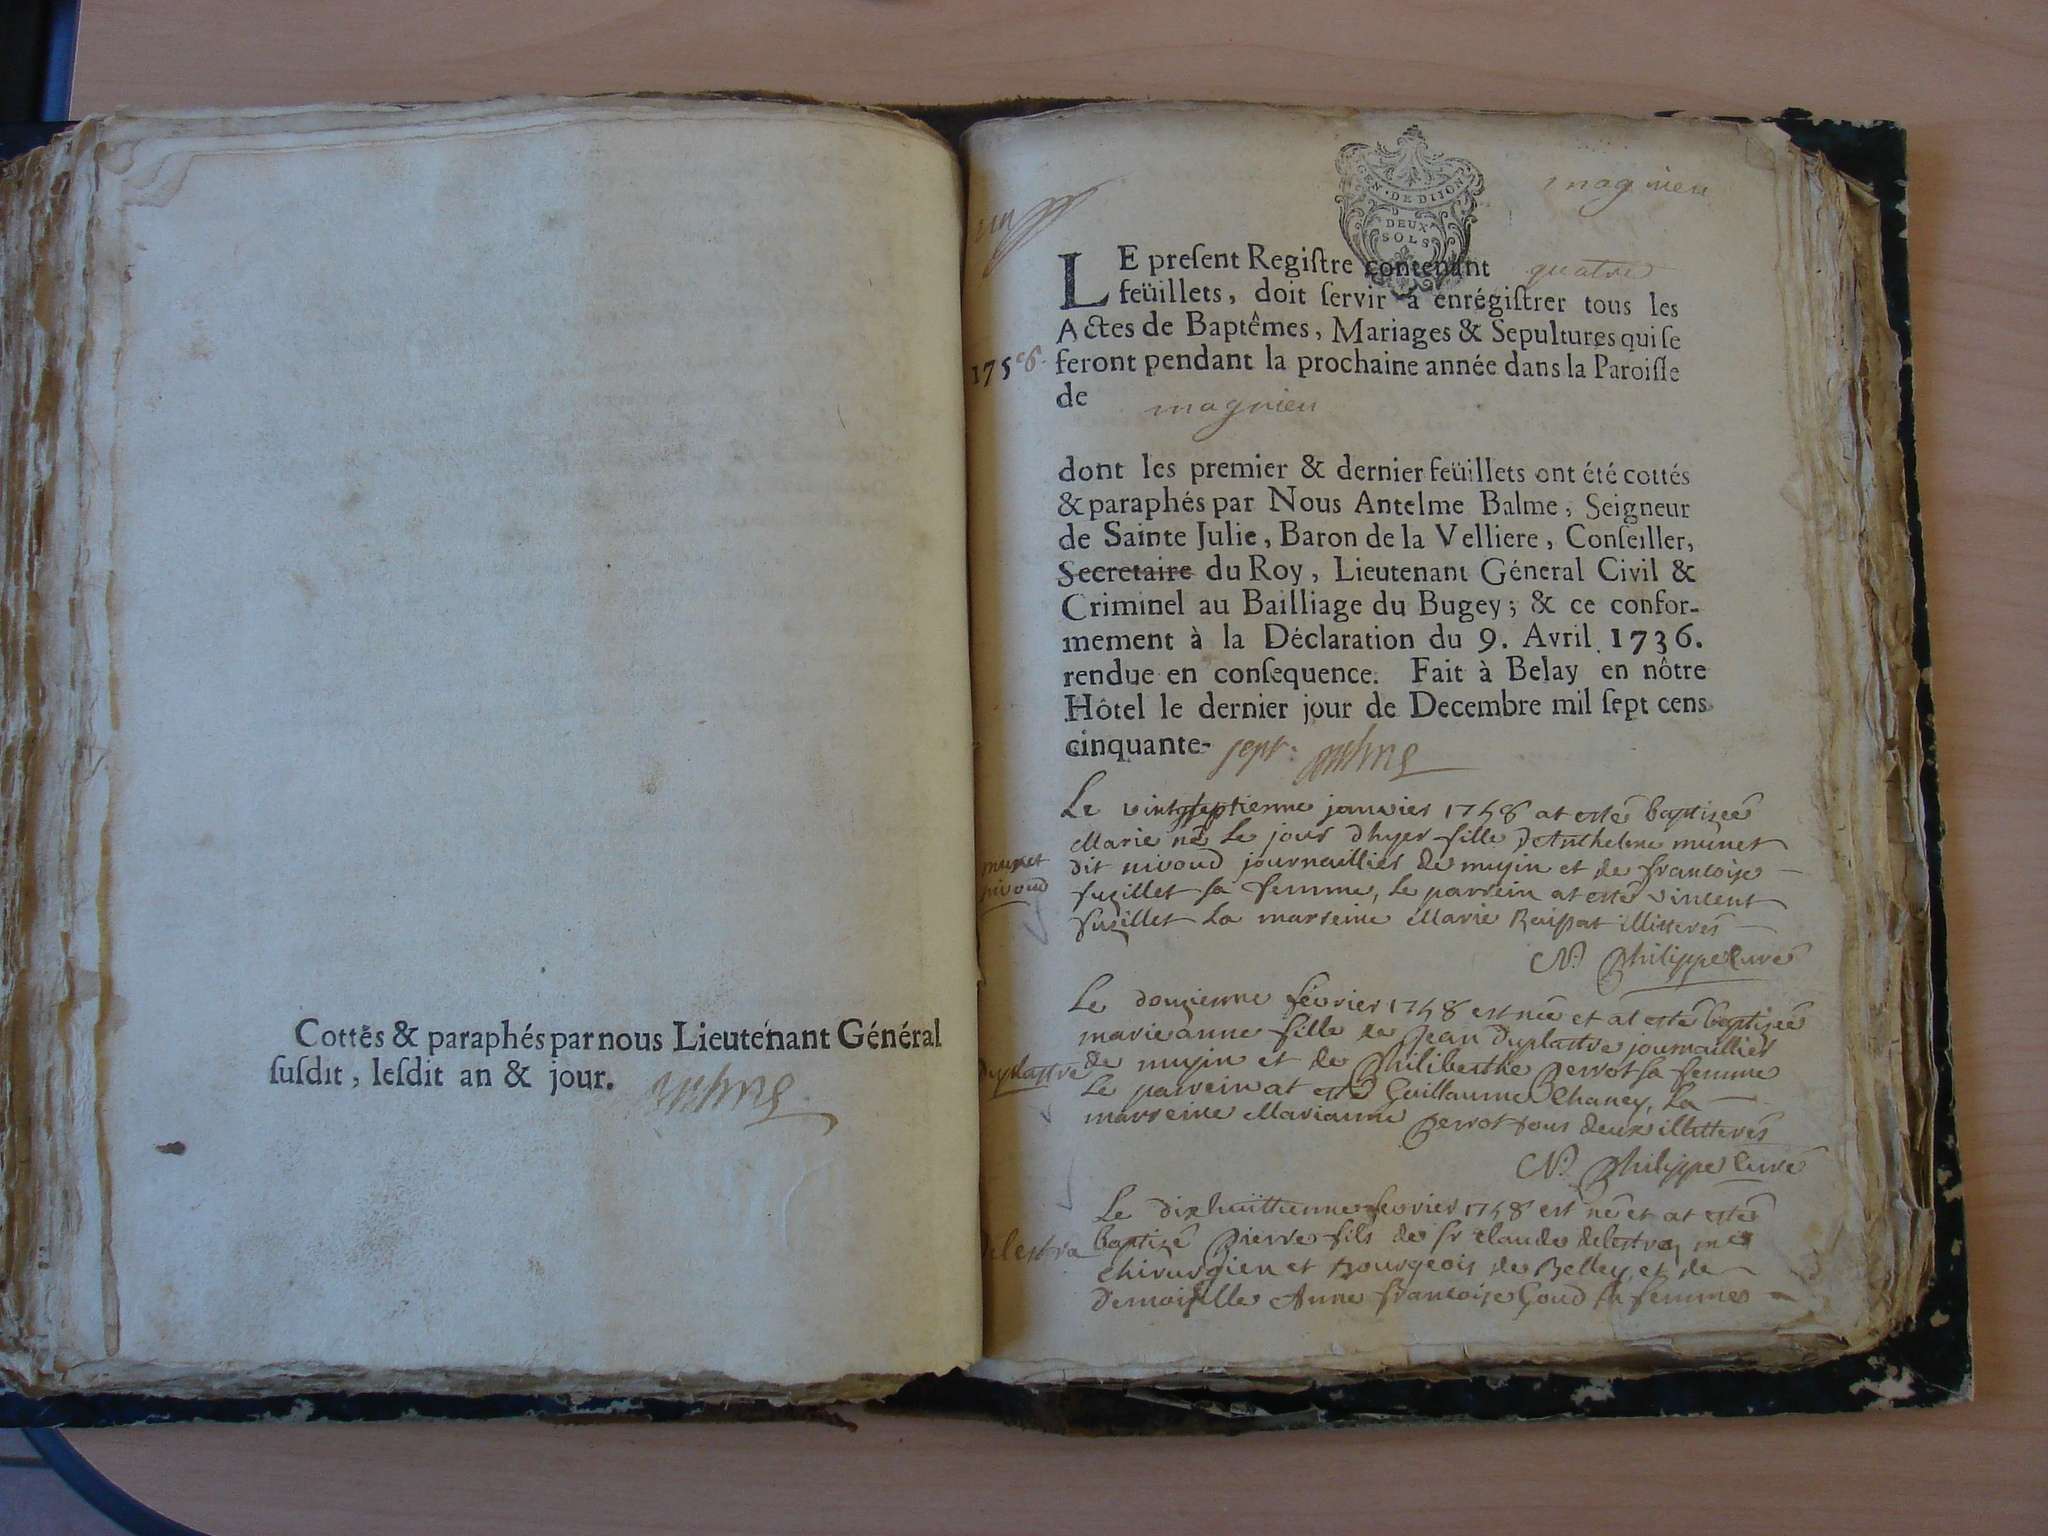 Cottés & paraphés par nous Lieutenant Général
ſuſdit, leſdit an & jour.
GEN. DE DIJON
DEUX
SOLS
magnieu
LE preſent Regiſtre contenant quatre
feüillets, doit ſervir à enrégiſtrer tous les
Actes de Baptêmes, Mariages & Sepultures qui ſe
1758.
feront pendant la prochaine année dans la Paroiſſe
de magnieu
dont les premier & dernier feüillets ont été cottés
& paraphés par Nous Antelme Balme, Seigneur
de Sainte Julie, Baron de la Velliere, Conſeiller,
Secretaire du Roy, Lieutenant Géneral Civil &
Criminel au Bailliage du Bugey; & ce confor-
mement à la Déclaration du 9. Avril 1736.
rendue en conſequence. Fait à Belay en nôtre
Hôtel le dernier jour de Decembre mil ſept cens
cinquante- sept.
Le vintgseptienne janvier 1758 at esté baptizeé
Marie né Le jour d'hyer fille d'Anthelme munet
munet
nivoud
dit nivoud journaillier de musin et de francoise
fuzillet sa femme, Le parrein at esté vincent
fuzillet La marreine Marie illitterés
N. Philippe Curé
Le douzienne février 1758 est neé et at esté baptizeé
marie anne fille de Jean Duplastre journaillier
Duplastre
de musin et de Philiberthe Perrot sa femme
Le parrein at esté Guillaume Chaney, La
marreine Marianne Perrot tous deux illitterés
N. Philippe Curé
Le dixhuittienne fevrier 1758 est né et at esté
delestra
baptizé Pierre fils de sr claude delestra, me
chirurgien et Bourgeois de Belley, et de
Demoiselle Anne francoise Goud sa femme